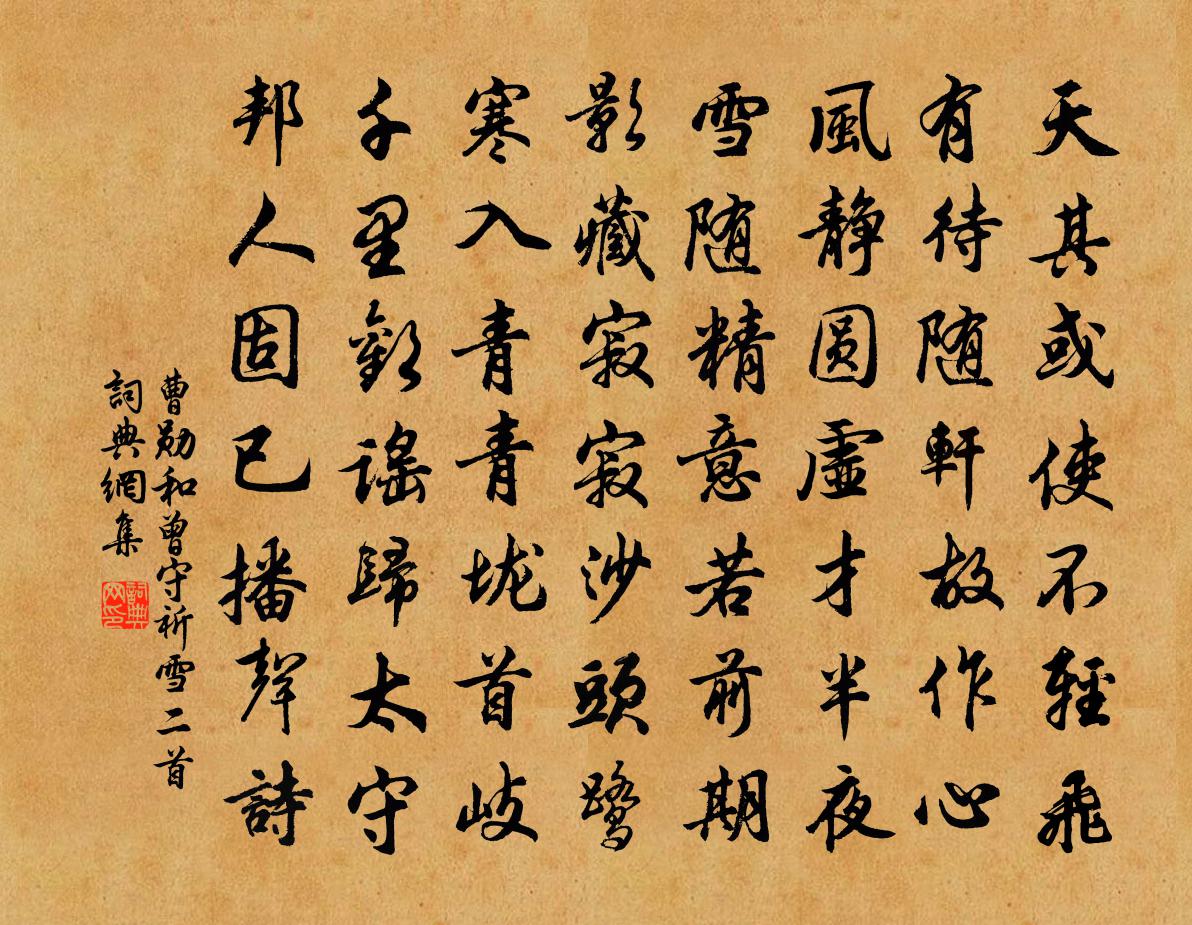 天其或使不輕飛
有待随軒故作心
風静圆虚才半夜
雪随精意若前期
影藏寂寂沙頭鹭
寒入青青垅首歧
千里歡謡歸太守
邦人固已播聲詩
曹勛和曾守祈雪二首
詞典網集
詞典
网印